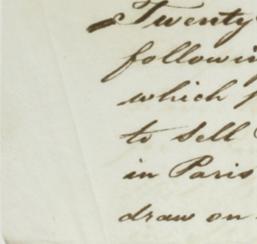 Twenty
followin
which
to sell
in Paris
draw on